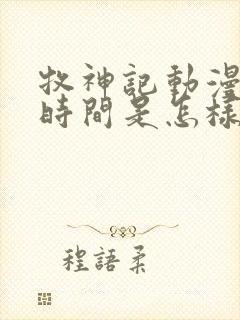 牧神記動漫
時間是怎樣
程語柔